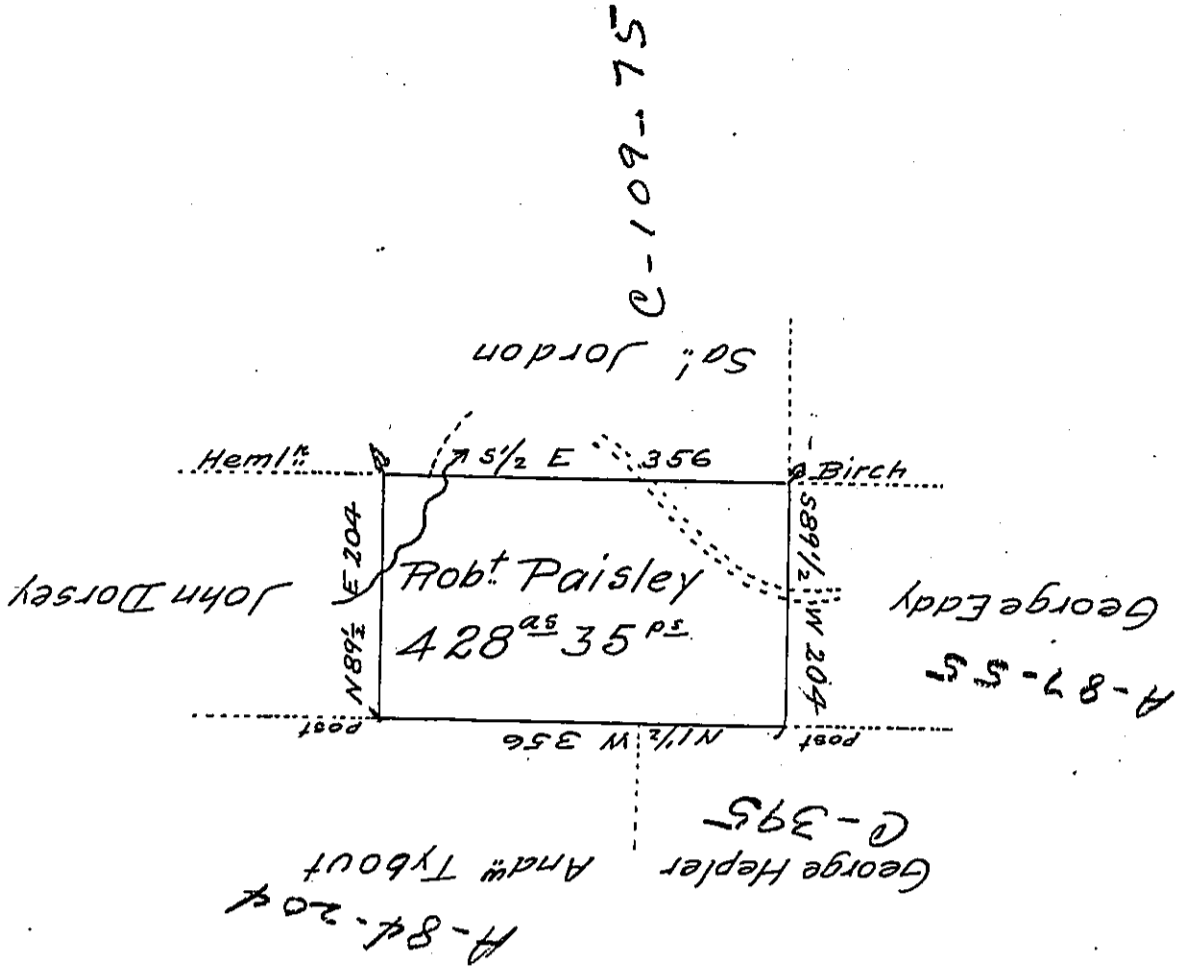 C-109-75
Sa:l Jordon
Heml:k
S 1/2 E 356
Birch
John Dorsey
N89 1/2 E 204
Rob:t Paisley
428 as 35 ps
S89 1/2 W 204
George Eddy
A-87-55
Post
N1 1/2 W 356
Post
George Hepler
C-395
And:w Tybout
A-84-204